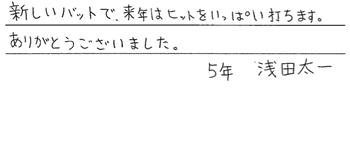 新しいバットで、来年はヒットをいっぱい打ちます。
ありがとうございました。
5年 浅田太一